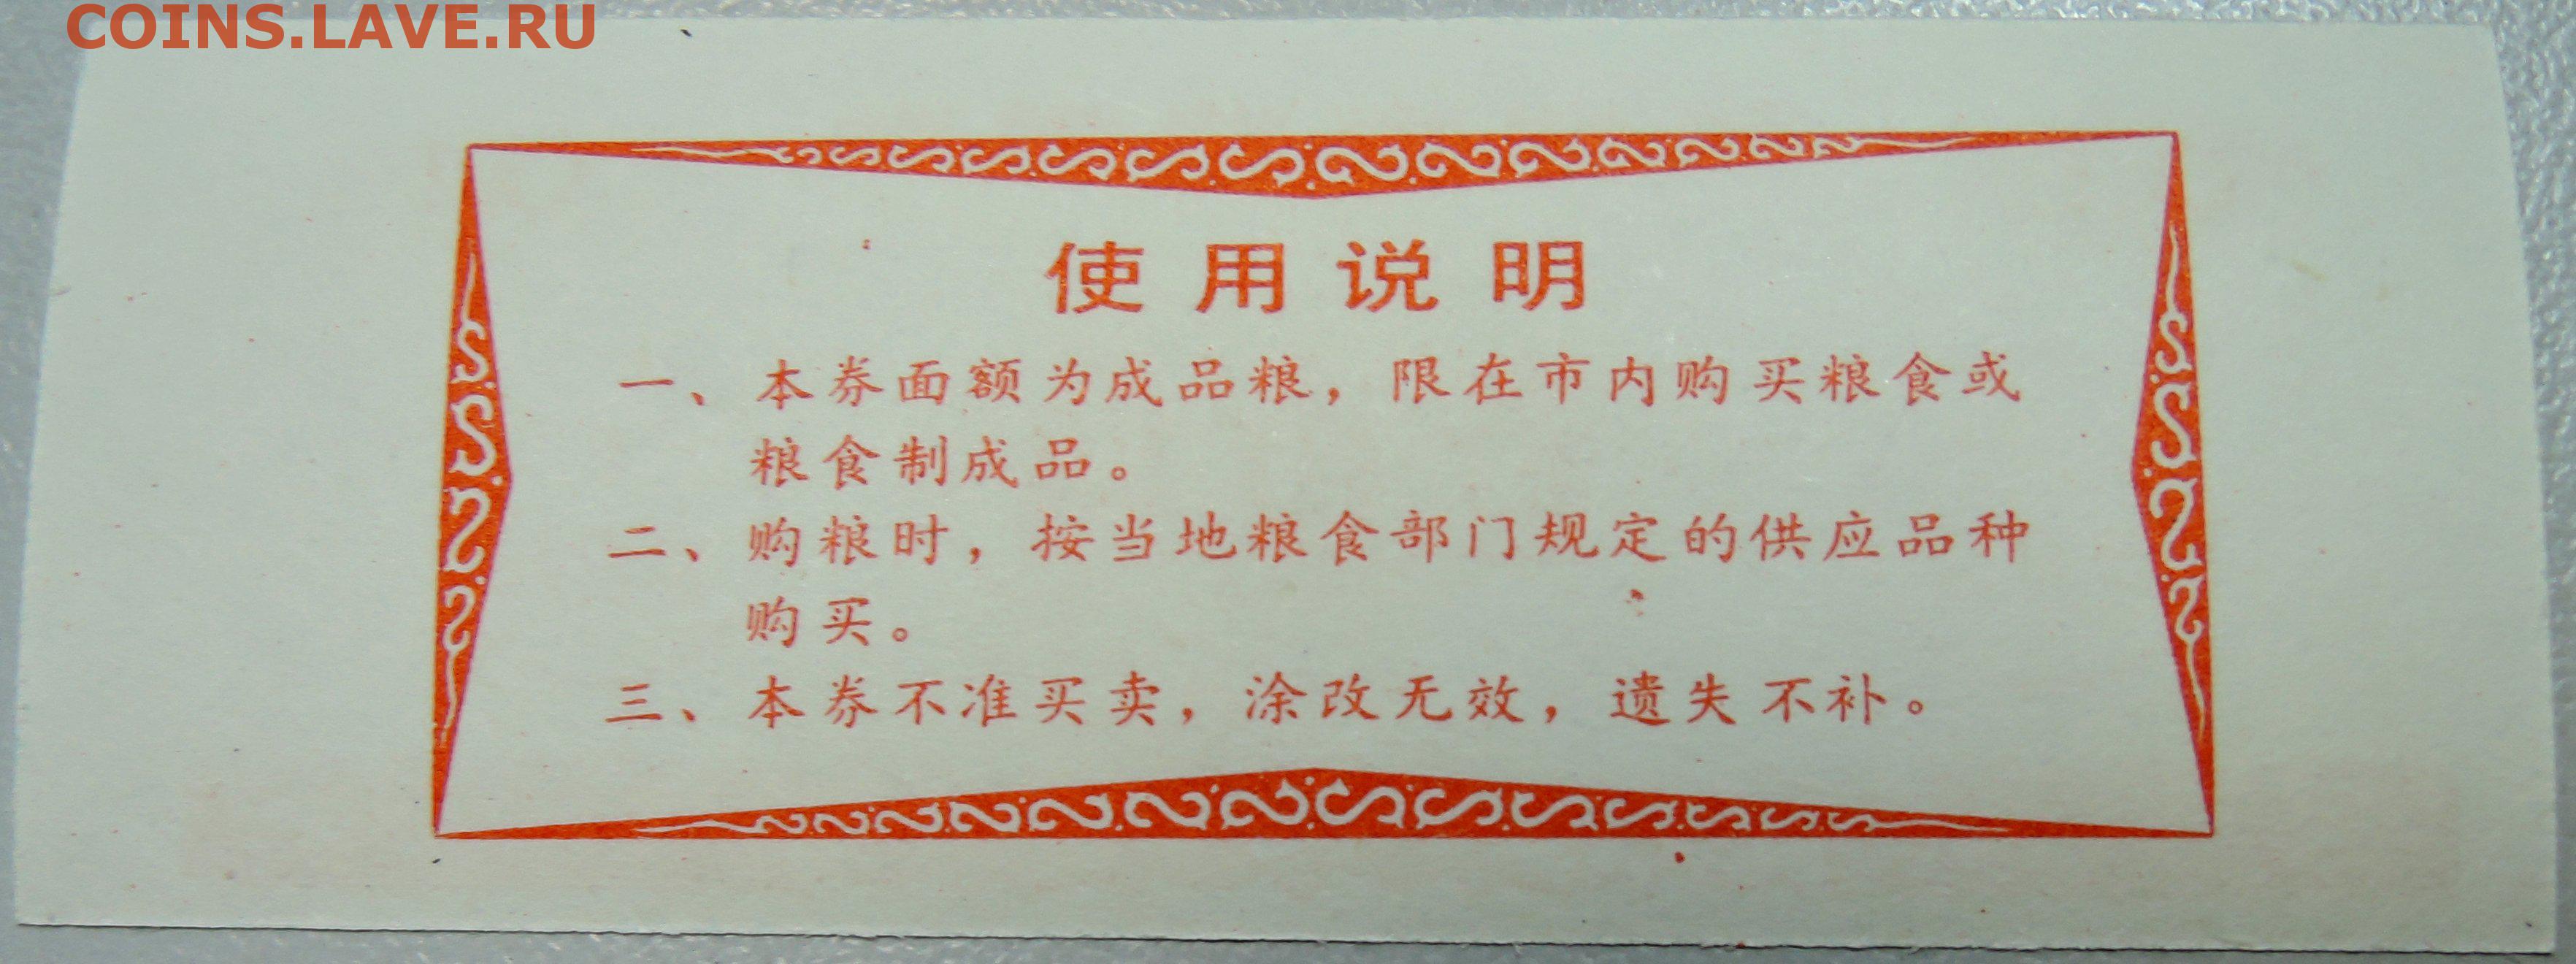 COINS.LAVE.RU
使用说明
一、本券面额为成品粮，限在市内购买粮食或
粮食制成品。
二、购粮时，按当地粮食部门规定的供应品种
购买。
三、本券不准买卖，涂改无效，遗失不补。